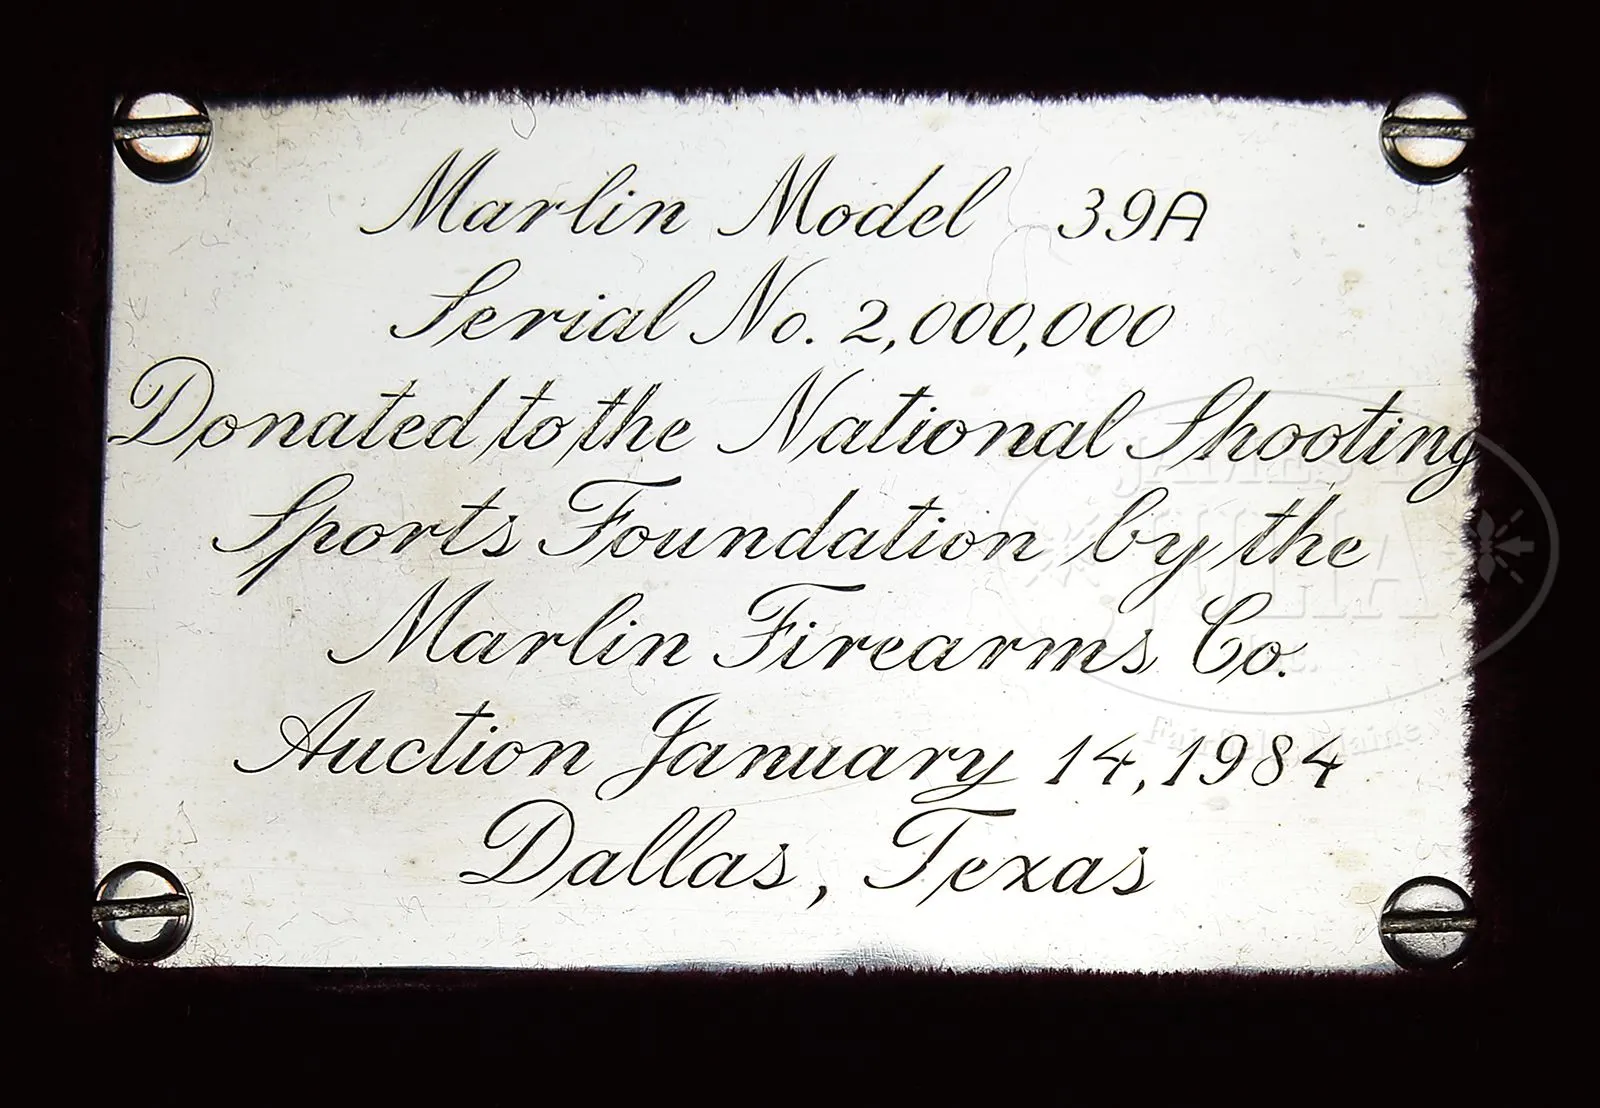 Marlin Model 39A
Serial No. 2,000,000
Donated to the National Shooting
Sports Foundation by the
Marlin Firearms Co.
Auction January 14, 1984
Dallas, Texas
JAMES D.
JULIA
INC.
Fairfield, Maine